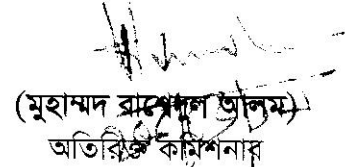 (মুহাম্মদ রাশেদুল আলম)
অতিরিক্ত কমিশনার